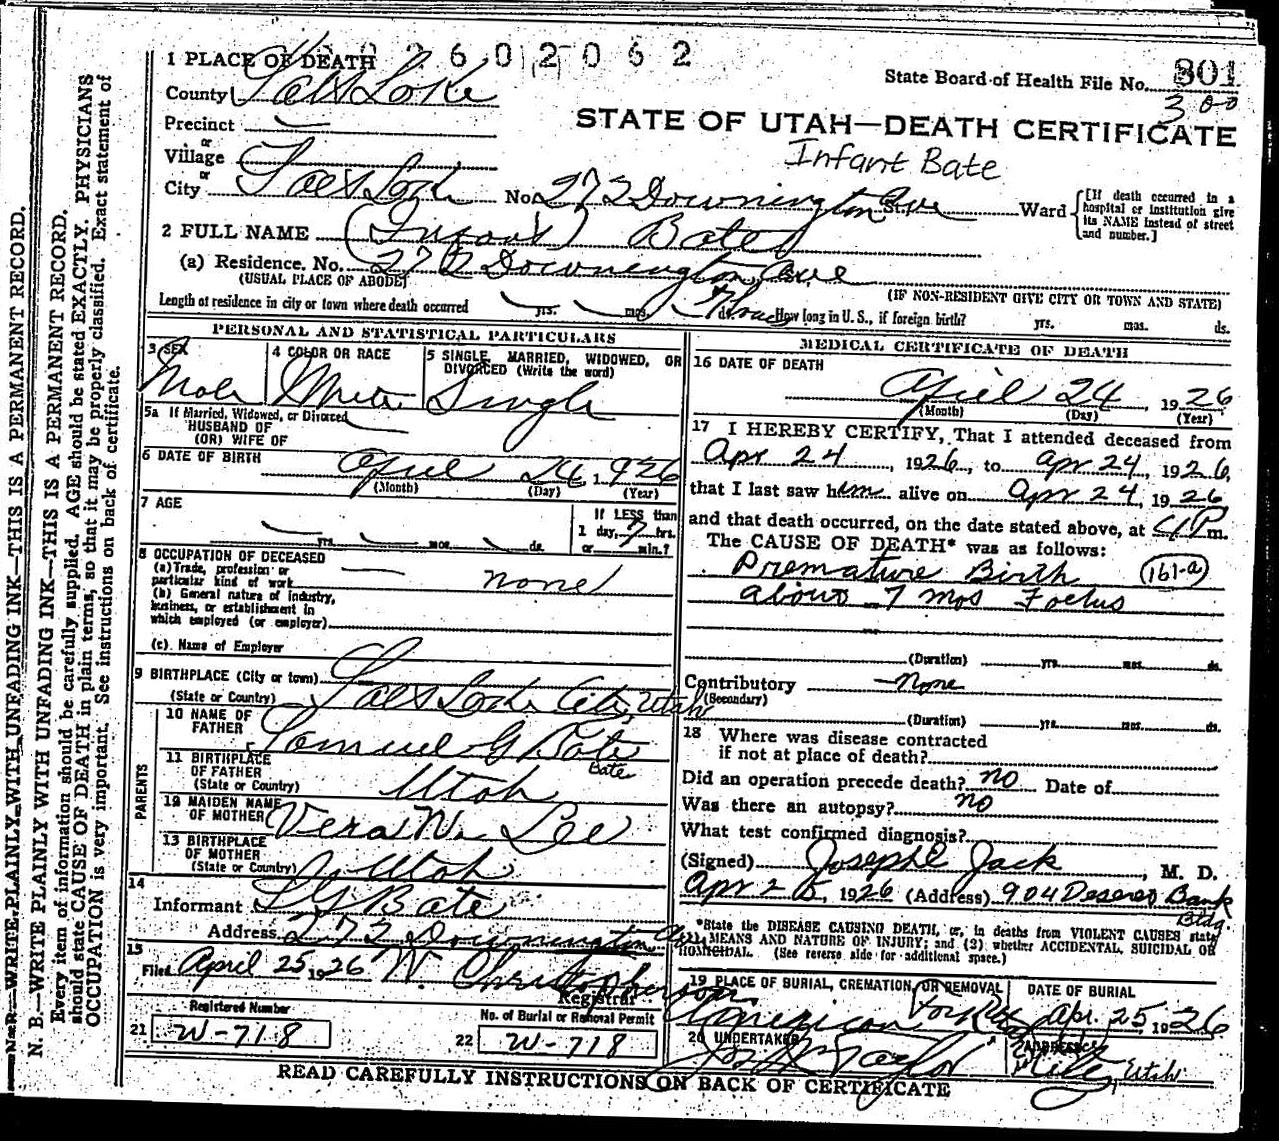 2602062
1 PLACE OF DEATH
State Board of Health File No. 801
300
County Salt Lake
STATE OF UTAH—DEATH CERTIFICATE
Precinct
or
Village
Infant Bate
or
City Salt Lake No. 272 Downington Ave St. Ward
[If death occurred in a
hospital or institution give
its NAME instead of street
and number.]
2 FULL NAME (Infant) Bate
(a) Residence. No. 272 Downington Ave
(USUAL PLACE OF ABODE)
(IF NON-RESIDENT GIVE CITY OR TOWN AND STATE)
Length of residence in city or town where death occurred yrs. mos. 7 hrs ds. How long in U. S., if foreign birth? yrs. mos. ds.
PERSONAL AND STATISTICAL PARTICULARS
3 SEX
Male
4 COLOR OR RACE
White
5 SINGLE, MARRIED, WIDOWED, OR
DIVORCED (Write the word)
Single
5a If Married, Widowed, or Divorced
HUSBAND OF
(OR) WIFE OF
6 DATE OF BIRTH April 24 1926
(Month) (Day) (Year)
7 AGE
yrs. mos. ds.
If LESS than
1 day, 7 hrs.
or min.?
8 OCCUPATION OF DECEASED
(a) Trade, profession or
particular kind of work none
(b) General nature of industry,
business, or establishment in
which employed (or employer)
(c). Name of Employer
9 BIRTHPLACE (City or town)
(State or Country) Salt Lake City, Utah
PARENTS
10 NAME OF
FATHER Samuel G Bate
Bate
11 BIRTHPLACE
OF FATHER
(State or Country) Utah
12 MAIDEN NAME
OF MOTHER Vera W. Lee
13 BIRTHPLACE
OF MOTHER
(State or Country) Utah
14
Informant S G Bate
Address 272 Downington Ave
15
Filed April 25 1926 W. Christopherson
Registrar
Registered Number
21 W-718
No. of Burial or Removal Permit
22 W-718
MEDICAL CERTIFICATE OF DEATH
16 DATE OF DEATH
April 24, 1926
(Month) (Day) (Year)
17 I HEREBY CERTIFY, That I attended deceased from
Apr 24, 1926, to Apr 24, 1926,
that I last saw him alive on Apr 24, 1926
and that death occurred, on the date stated above, at 4 P m.
The CAUSE OF DEATH* was as follows:
Premature Birth (161-a)
about 7 mos Foetus
(Duration) yrs. mos. ds.
Contributory None
(Secondary)
(Duration) yrs. mos. ds.
18 Where was disease contracted
if not at place of death?
Did an operation precede death? no Date of
Was there an autopsy? no
What test confirmed diagnosis?
(Signed) Joseph E Jack, M. D.
Apr 25, 1926 (Address) 904 Deseret Bank
Bldg.
*State the DISEASE CAUSING DEATH, or, in deaths from VIOLENT CAUSES state
(1) MEANS AND NATURE OF INJURY; and (2) whether ACCIDENTAL, SUICIDAL OR
HOMICIDAL. (See reverse side for additional space.)
19 PLACE OF BURIAL, CREMATION, OR REMOVAL
American Fork
DATE OF BURIAL
Apr. 25, 1926
20 UNDERTAKER
Taylor
ADDRESS
Utah
READ CAREFULLY INSTRUCTIONS ON BACK OF CERTIFICATE
N. B.—WRITE PLAINLY WITH UNFADING INK—THIS IS A PERMANENT RECORD.
N. B.—WRITE PLAINLY WITH UNFADING INK—THIS IS A PERMANENT RECORD.
Every item of information should be carefully supplied. AGE should be stated EXACTLY. PHYSICIANS
should state CAUSE OF DEATH in plain terms, so that it may be properly classified. Exact statement of
OCCUPATION is very important. See instructions on back of certificate.